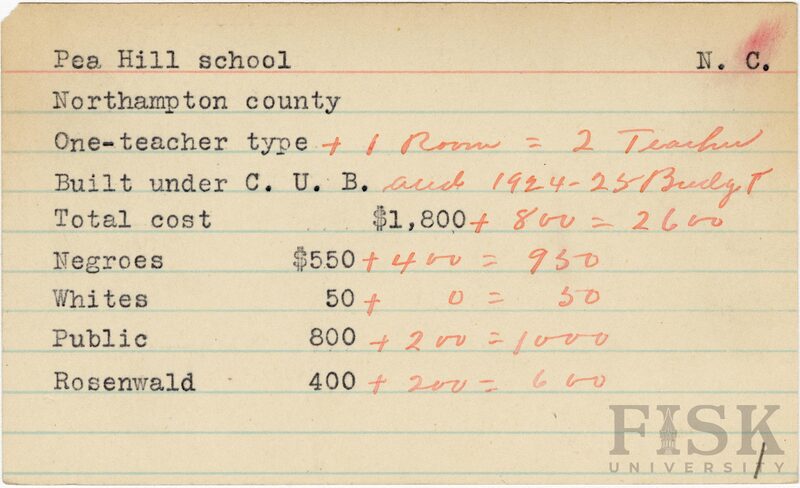 Pea Hill school N. C.
Northampton county
One-teacher type + 1 Room = 2 Teacher
Built under C. U. B. and 1924-25 Budget
Total cost $1,800 + 800 = 2600
Negroes $550 + 400 = 950
Whites 50 + 0 = 50
Public 800 + 200 = 1000
Rosenwald 400 + 200 = 600
FISK
UNIVERSITY